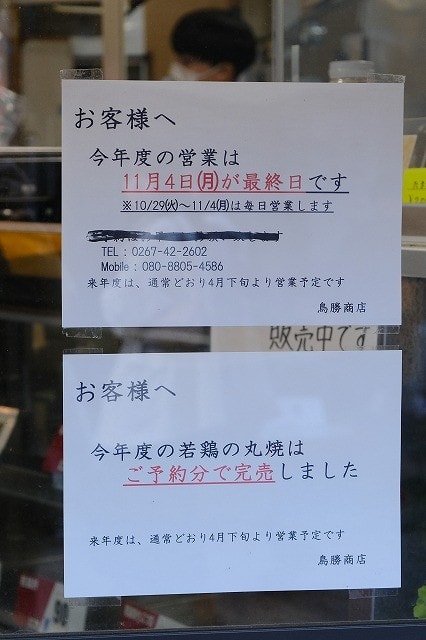 お客様へ
今年度の営業は
11月4日㈪が最終日です
※10/29㈫～11/4㈪は毎日営業します
TEL : 0267-42-2602
Mobile : 080-8805-4586
来年度は、通常どおり4月下旬より営業予定です
鳥勝商店
販売中です
お客様へ
今年度の若鶏の丸焼は
ご予約分で完売しました
来年度は、通常どおり4月下旬より営業予定です
鳥勝商店